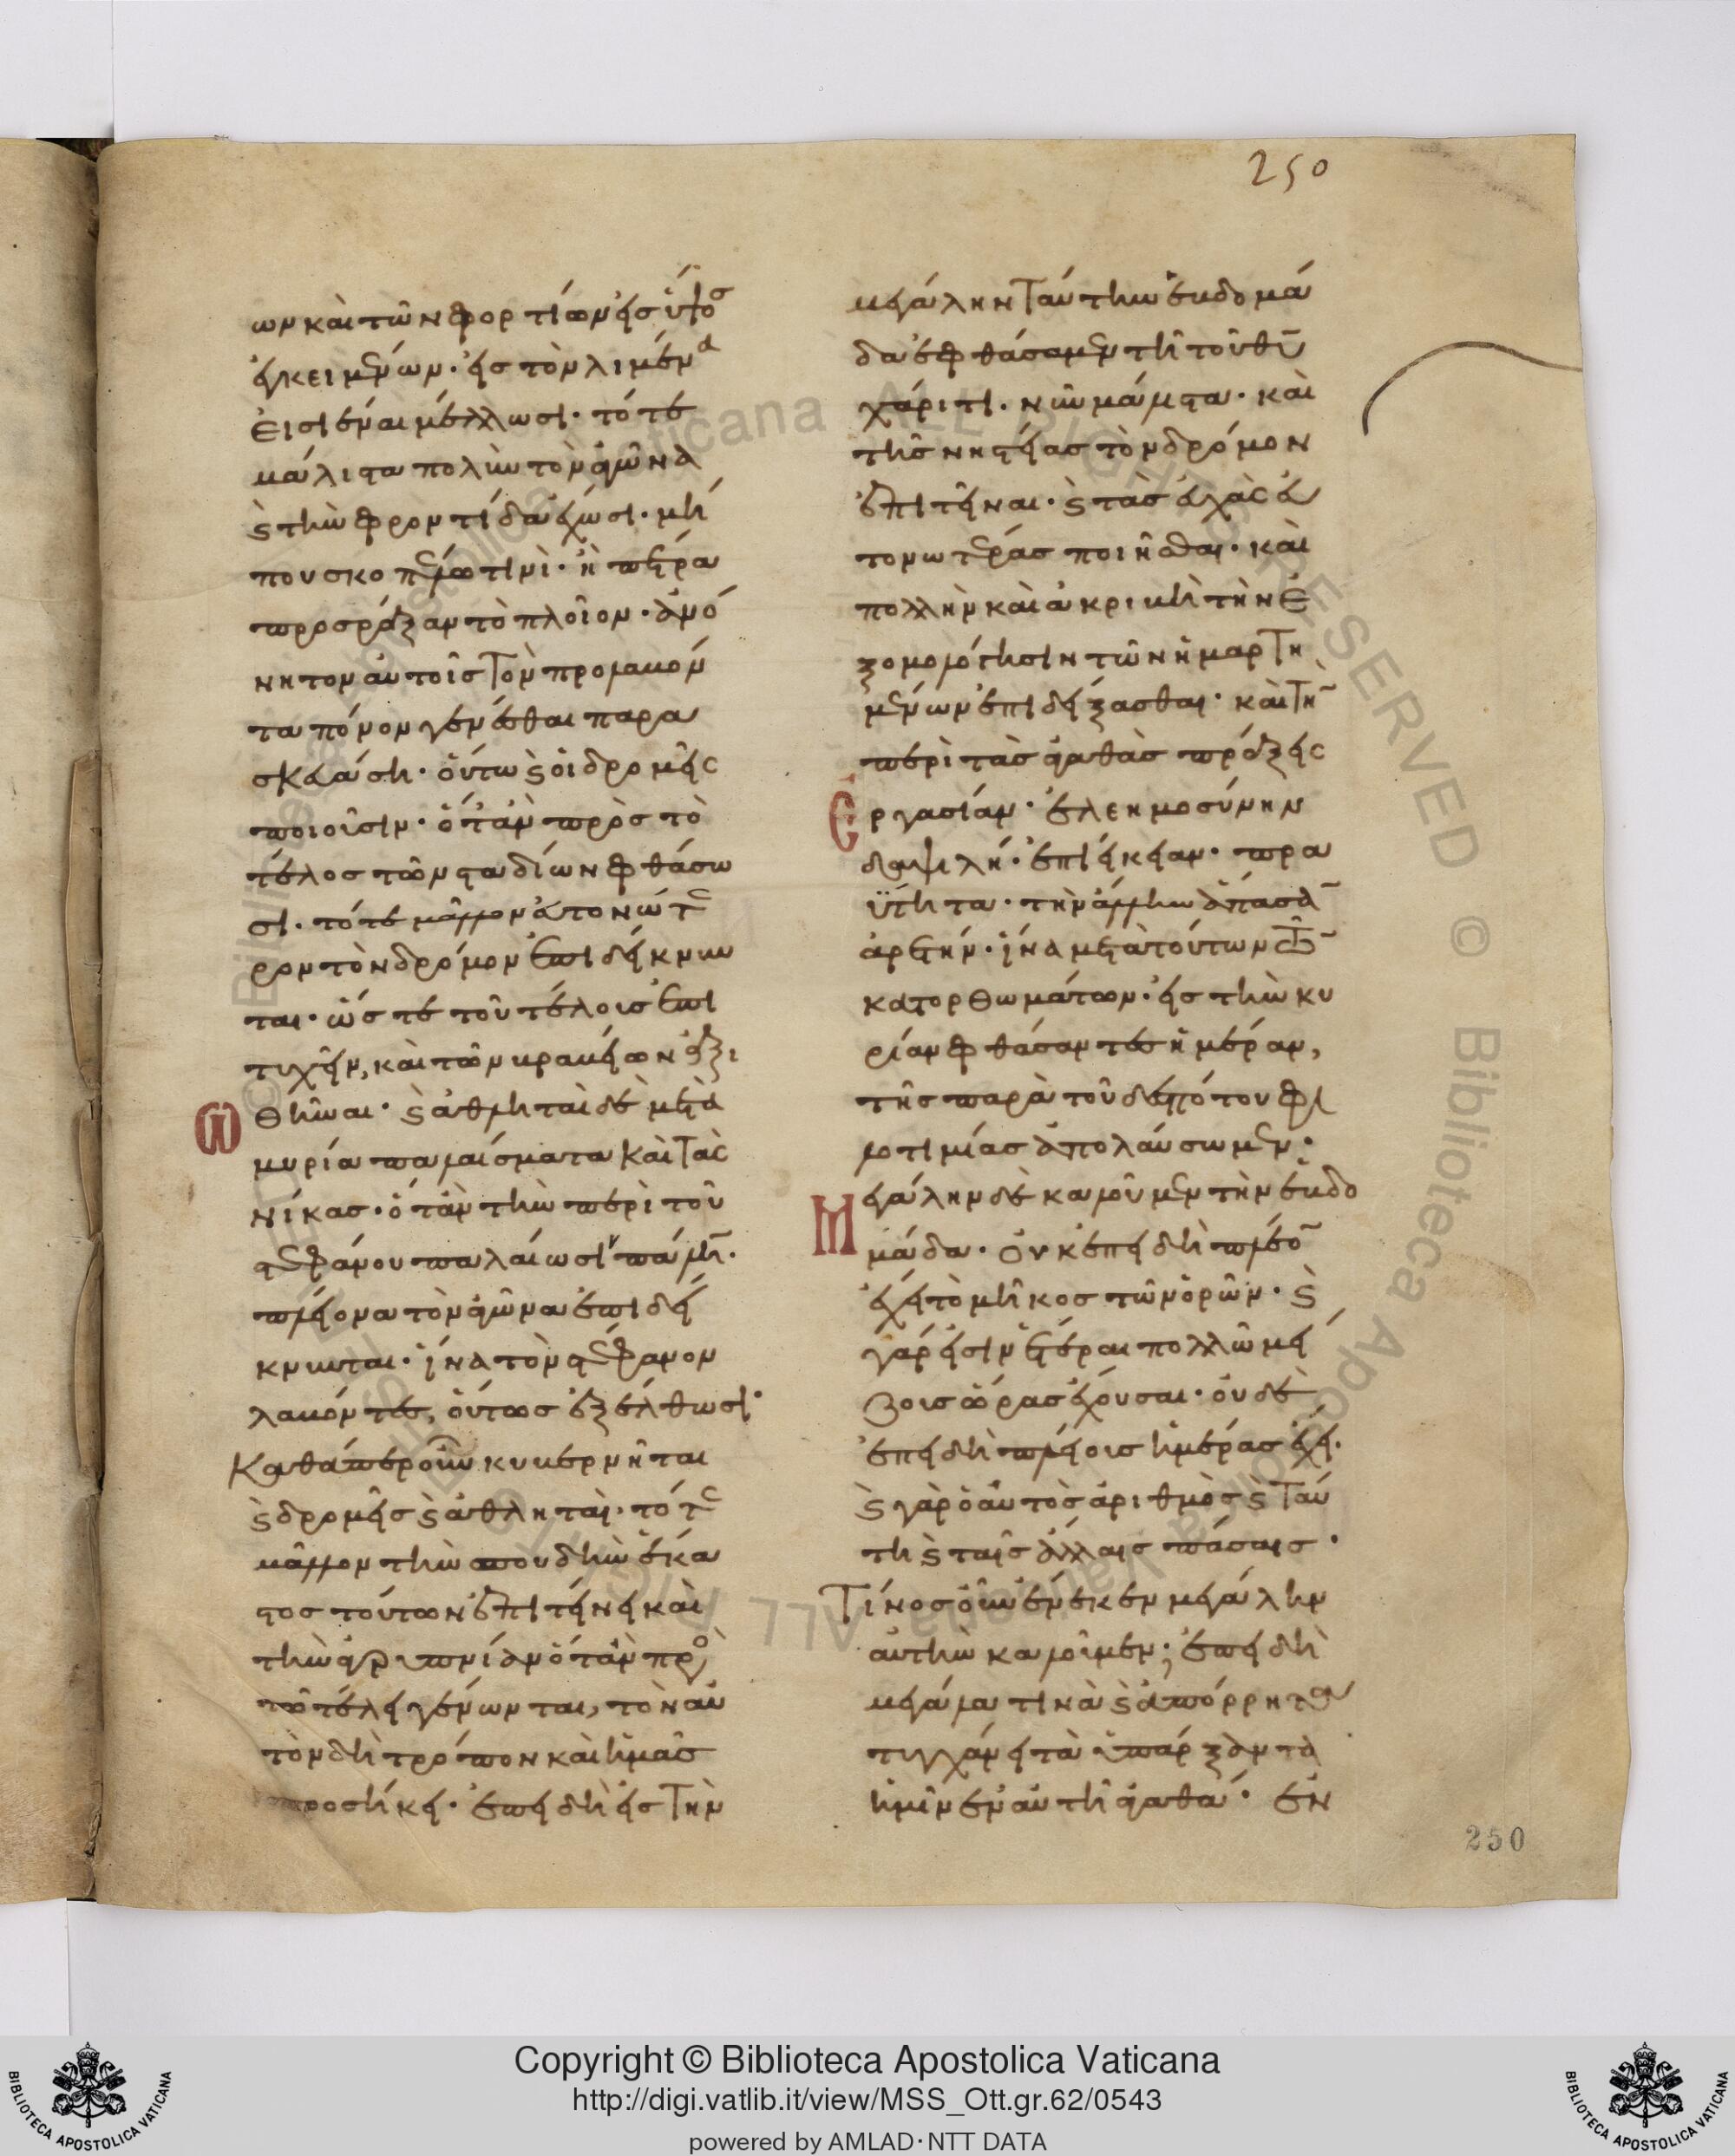 250
ων καὶ τῶν φορτίων εἰς ὕψος
ἐγκειμένων· εἰς τὸν λιμένα
εἰσιέναι μέλλωσι· τότε
μάλιστα πολὺν τὸν ἀγῶνα
καὶ τὴν φροντίδα ἔχωσι· μή
που σκοπέλω τινὶ· ἢ πέτρα
προσράξαν τὸ πλοῖον· ἀνό
νητον αὐτοῖς τὸν προλαβόν
τα πόνον γενέσθαι παρα
σκευάση· οὕτω καὶ οἱ δρομεῖς
ποιοῦσιν· ὅταν πρὸς τὸ
τέλος τῶν σταδίων φθάσω
σι· τότε μᾶλλον εὐτονώτε
ρον τὸν δρόμον ἐπιδείκνυν
ται· ὥστε τοῦ τέλους ἐπι
τυχεῖν, καὶ τῶν βραβείων ἀξι
ωθῆναι· καὶ ἀθληταὶ δὲ μετὰ
μυρία παλαίσματα καὶ τὰς
νίκας· ὅταν τὴν περὶ τοῦ
στεφάνου παλαίωσιν πάλην·
πλείονα τὸν ἀγῶνα ἐπιδεί
κνυνται· ἵνα τὸν στέφανον
λαβόντες, οὕτως ἐξέλθωσι·
Καθάπερ οὖν κυβερνῆται
καὶ δρομεῖς καὶ ἀθληταὶ· τότε
μᾶλλον τὴν σπουδὴν ἕκα
στος τούτων ἐπιτείνει καὶ
τὴν ἀγρυπνίαν ὅταν πρὸς
τῶ τέλει γένωνται, τὸν αὐ
τὸν δὴ τρόπον καὶ ἡμᾶς
προσήκει· ἐπειδὴ εἰς τὴν
μεγάλην ταύτην ἑβδομά
δα ἐφθάσαμεν τῆ τοῦ θυ
χάριτι· νῦν μάλιστα· καὶ
τῆς νηστείας τὸν δρόμον
ἐπιτεῖναι· καὶ τὰς εὐχὰς εὐ
τονωτέρας ποιῆσθαι· καὶ
πολλὴν καὶ ἀκριβῆ τὴν ἐ
ξομολόγησιν τῶν ἡμαρτη
μένων ἐπιδείξασθαι· καὶ τὴν
περὶ τὰς ἀγαθὰς πράξεις
ἐργασίαν· ἐλεημοσύνην
δαψιλῆ· ἐπιείκειαν· πρα
ΰτητα· τὴν ἄλλην ἅπασαν
ἀρετήν· ἵνα μετὰ τούτων τῶν
κατορθωμάτων· εἰς τὴν κυ
ρίαν φθάσαντες ἡμέραν,
τῆς παρὰ τοῦ δεσπότου φι
λοτιμίας ἀπολαύσωμεν·
Μεγάλην δὲ καλοῦμεν τὴν ἑβδο
μάδα· οὐκ ἐπειδὴ πλέον
ἔχει τὸ μῆκος τῶν ὡρῶν· καὶ
γάρ εἰσιν ἕτεραι πολλῶ μεί
ζους ὥρας ἔχουσαι· οὐδὲ
ἐπειδὴ πλείους ἡμέρας ἔχει·
καὶ γὰρ ὁ αὐτὸς ἀριθμὸς καὶ ταύ
τη καὶ ταῖς ἄλλαις πάσαις·
Τίνος οὖν ἕνεκεν μεγάλην
αὐτὴν καλοῦμεν; ἐπειδὴ
μεγάλα τινὰ καὶ ἀπόρρητα
τυγχάνει τὰ ὑπάρξαντα
ἡμῖν ἐν αὐτῆ ἀγαθά· ἐν
250
Copyright © Biblioteca Apostolica Vaticana
http://digi.vatlib.it/view/MSS_Ott.gr.62/0543
powered by AMLAD·NTT DATA
BIBLIOTECA APOSTOLICA VATICANA
BIBLIOTECA APOSTOLICA VATICANA